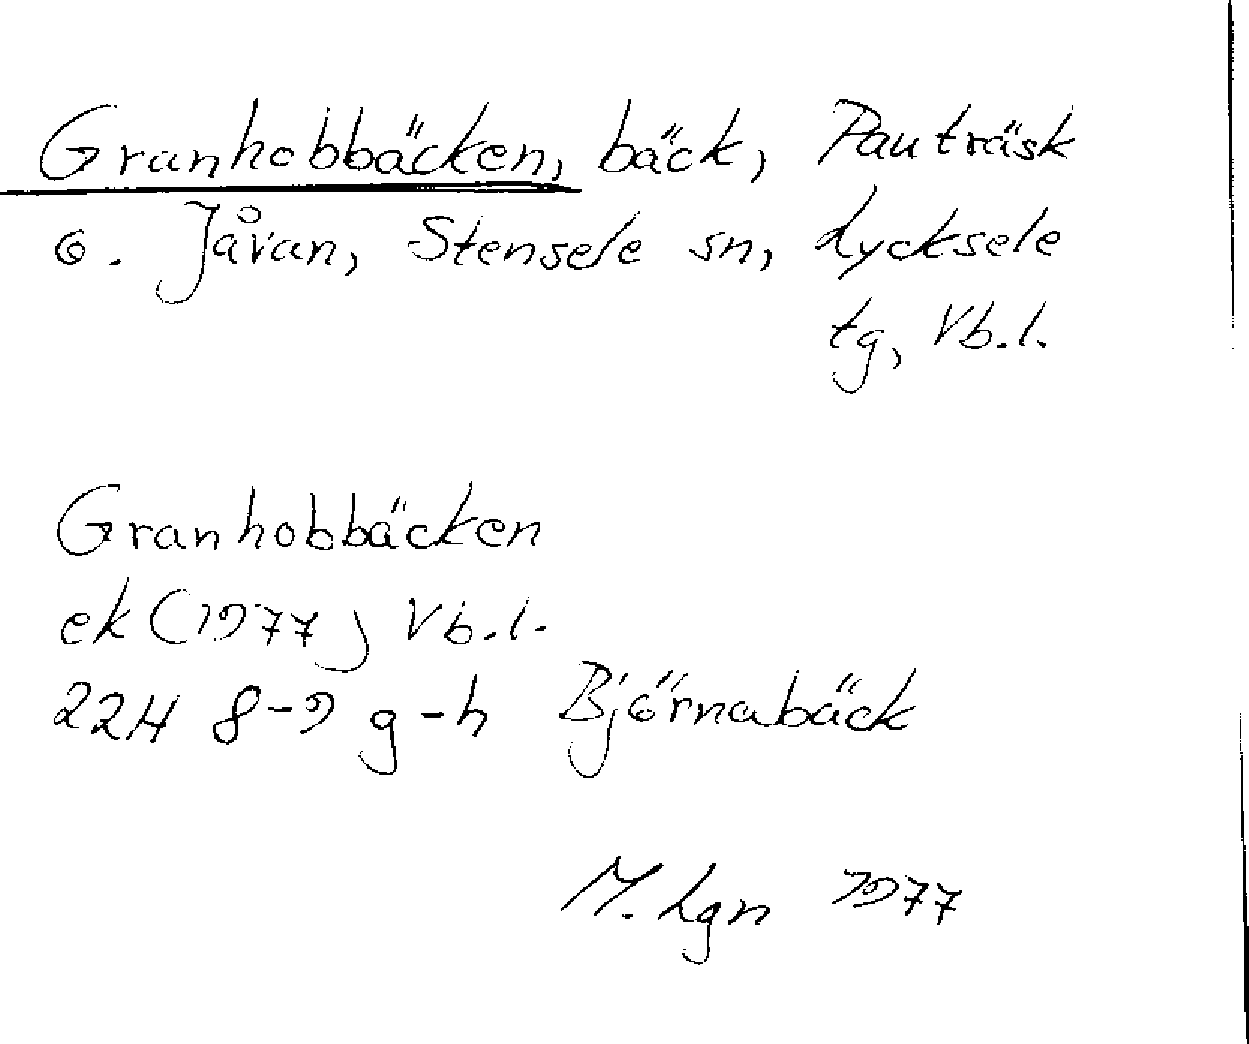 Granhobbäcken, bäck, Pauträsk
o. Jåvan, Stensele sn, Lycksele
tg, Vb.l.
Granhobbäcken
ek (1977) Vb.l.
22H 8-9 g-h Björnabäck
M. Lgn 1977